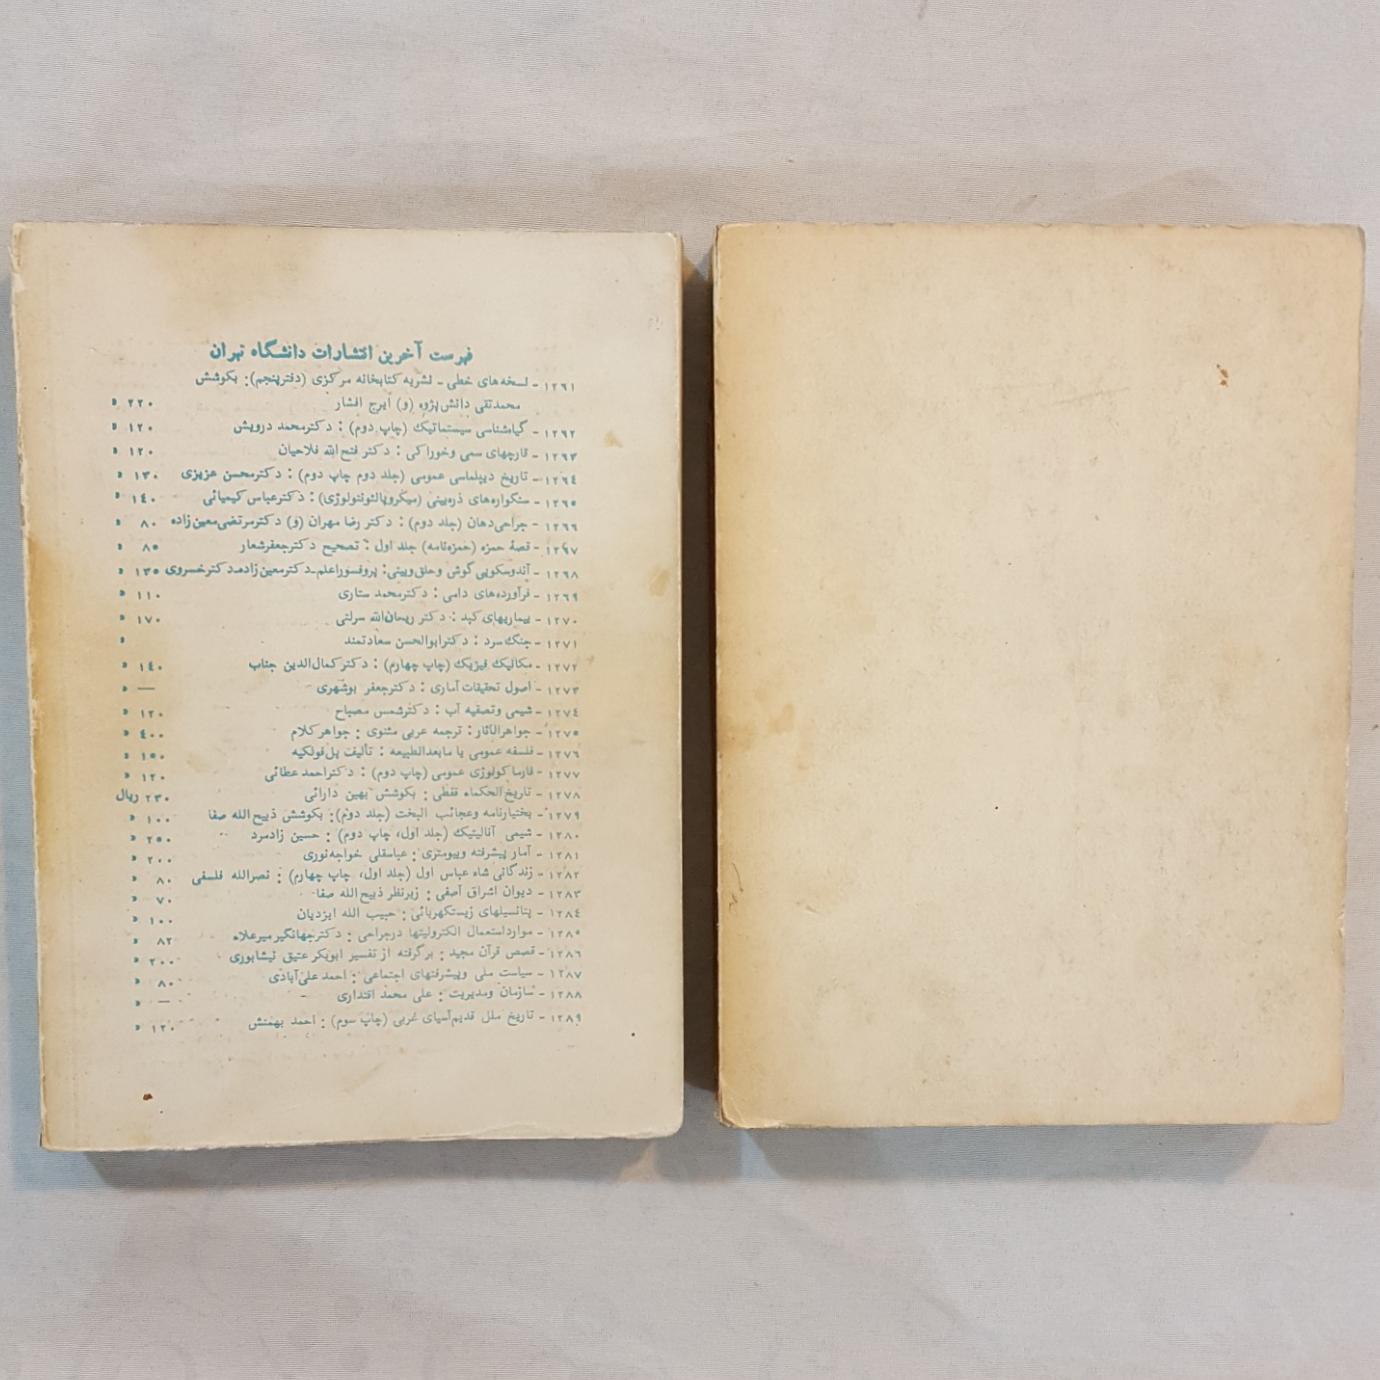 فهرست آخرین انتشارات دانشگاه تهران
۱۲۶۱ - نسخه‌های خطی - نشریه کتابخانه مرکزی (دفترپنجم): بکوشش
محمدتقی دانش‌پژوه (و) ایرج افشار ۲۲۰ »
۱۲۶۲ - گیاهشناسی سیستماتیک (چاپ دوم) : دکترمحمد درویش ۱۲۰ »
۱۲۶۳ - قارچهای سمی وخوراکی : دکتر فتح‌الله فلاحیان ۱۲۰ »
۱۲۶٤ - تاریخ دیپلماسی عمومی (جلد دوم چاپ دوم) : دکترمحسن عزیزی ۱۳۰ »
۱۲۶٥ - سنگواره‌های ذره‌بینی (میکروپالئونتولوژی) : دکترعباس کیمیائی ۱٤۰ »
۱۲۶۶ - جراحی‌دهان (جلد دوم) : دکتر رضا مهران (و) دکترمرتضی‌معین‌زاده ۸۰ »
۱۲۶۷ - قصهٔ حمزه (حمزه‌نامه) جلد اول : تصحیح دکترجعفرشعار ۸٥ »
۱۲۶۸ - آندوسکوپی گوش وحلق‌وبینی: پروفسوراعلم-دکترمعین‌زاده-دکترخسروی ۱۳٥ »
۱۲۶۹ - فرآورده‌های دامی : دکترمحمد ستاری ۱۱۰ »
۱۲۷۰ - بیماریهای کبد : دکتر ریحان‌الله سرلتی ۱۷۰ »
۱۲۷۱ - جنگ‌سرد : دکترابوالحسن سعادتمند »
۱۲۷۲ - مکانیک فیزیک (چاپ چهارم) : دکترکمال‌الدین جناب ۱٤۰ »
۱۲۷۳ - اصول تحقیقات‌آماری : دکترجعفر بوشهری — »
۱۲۷٤ - شیمی وتصفیه آب : دکترشمس مصباح ۱۲۰ »
۱۲۷٥ - جواهرالآثار : ترجمه عربی مثنوی : جواهرکلام ٤۰۰ »
۱۲۷۶ - فلسفه عمومی یا مابعدالطبیعه : تألیف پل‌فولکیه ۱٥۰ »
۱۲۷۷ - فارماکولوژی عمومی (چاپ دوم) : دکتراحمد عطائی ۱۲۰ »
۱۲۷۸ - تاریخ‌الحکماء قفطی : بکوشش بهین دارائی ۲۳۰ ریال
۱۲۷۹ - بختیارنامه وعجائب البخت (جلد دوم): بکوشش ذبیح‌الله صفا ۱۰۰ »
۱۲۸۰ - شیمی آنالیتیک (جلد اول، چاپ دوم) : حسین زادمرد ۲٥۰ »
۱۲۸۱ - آمار پیشرفته وبیومتری : عباسقلی خواجه‌نوری ۲۰۰ »
۱۲۸۲ - زندگانی شاه عباس اول (جلد اول، چاپ چهارم) : نصرالله فلسفی ۸۰ »
۱۲۸۳ - دیوان اشراق آصفی : زیرنظر ذبیح‌الله صفا ۷۰ »
۱۲۸٤ - پتانسیلهای زیستکهربائی : حبیب الله ایزدیان ۱۰۰ »
۱۲۸٥ - مواردااستعمال الکترولیتها درجراحی : دکترجهانگیرمیرعلاء ۸۲ »
۱۲۸۶ - قصص قرآن مجید : برگرفته از تفسیر ابوبکر عتیق نیشابوری ۲۰۰ »
۱۲۸۷ - سیاست ملی وپیشرفتهای اجتماعی : احمد علی‌آبادی ۸۰ »
۱۲۸۸ - سازمان ومدیریت : علی محمد اقتداری — »
۱۲۸۹ - تاریخ ملل قدیم‌آسیای غربی (چاپ سوم) : احمد بهمنش ۱۲۰ »